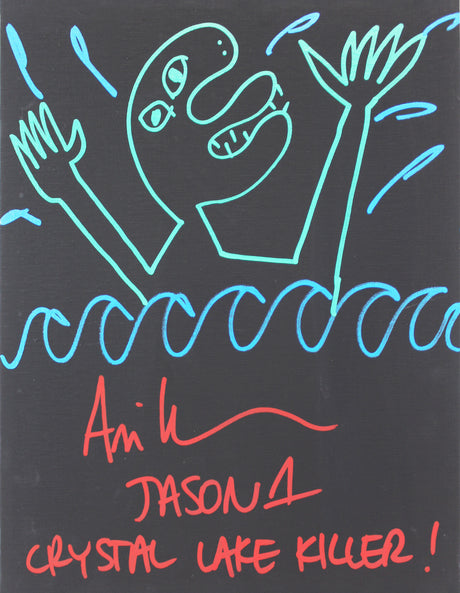 JASON 1
CRYSTAL LAKE KILLER!